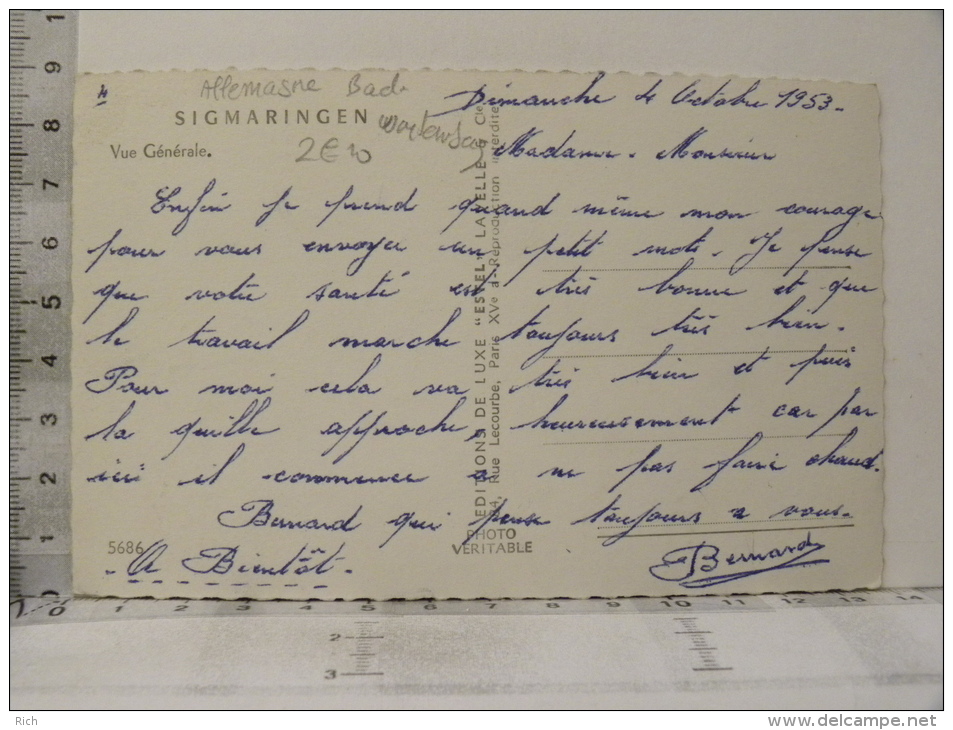 4
Allemagne Bad-
SIGMARINGEN
Vue Générale.
2€10
Dimanche 4 Octobre 1953.
Madame. Monsieur
Enfin je prend quand même mon courage
pour vous envoyer un petit mot. Je pense
que votre santé est très bonne et que
le travail marche toujours très bien.
Pour moi cela va très bien et puis
la quille approche, heureusement car par
ici il commence a ne pas faire chaud.
Bernard qui pense toujours a vous.
Bernard
A Bientôt.
5686
PHOTO
VERITABLE
EDITIONS DE LUXE "ESTEL" LAVELLE & Cie
Rue Lecourbe, Paris XVe - Reproduction interdite
1
9
8
7
6
5
4
3
2
1
0 1 2 3 4 5 6 7 8 9 10 11 12 13 14
2
3
Rich
delcampe.net